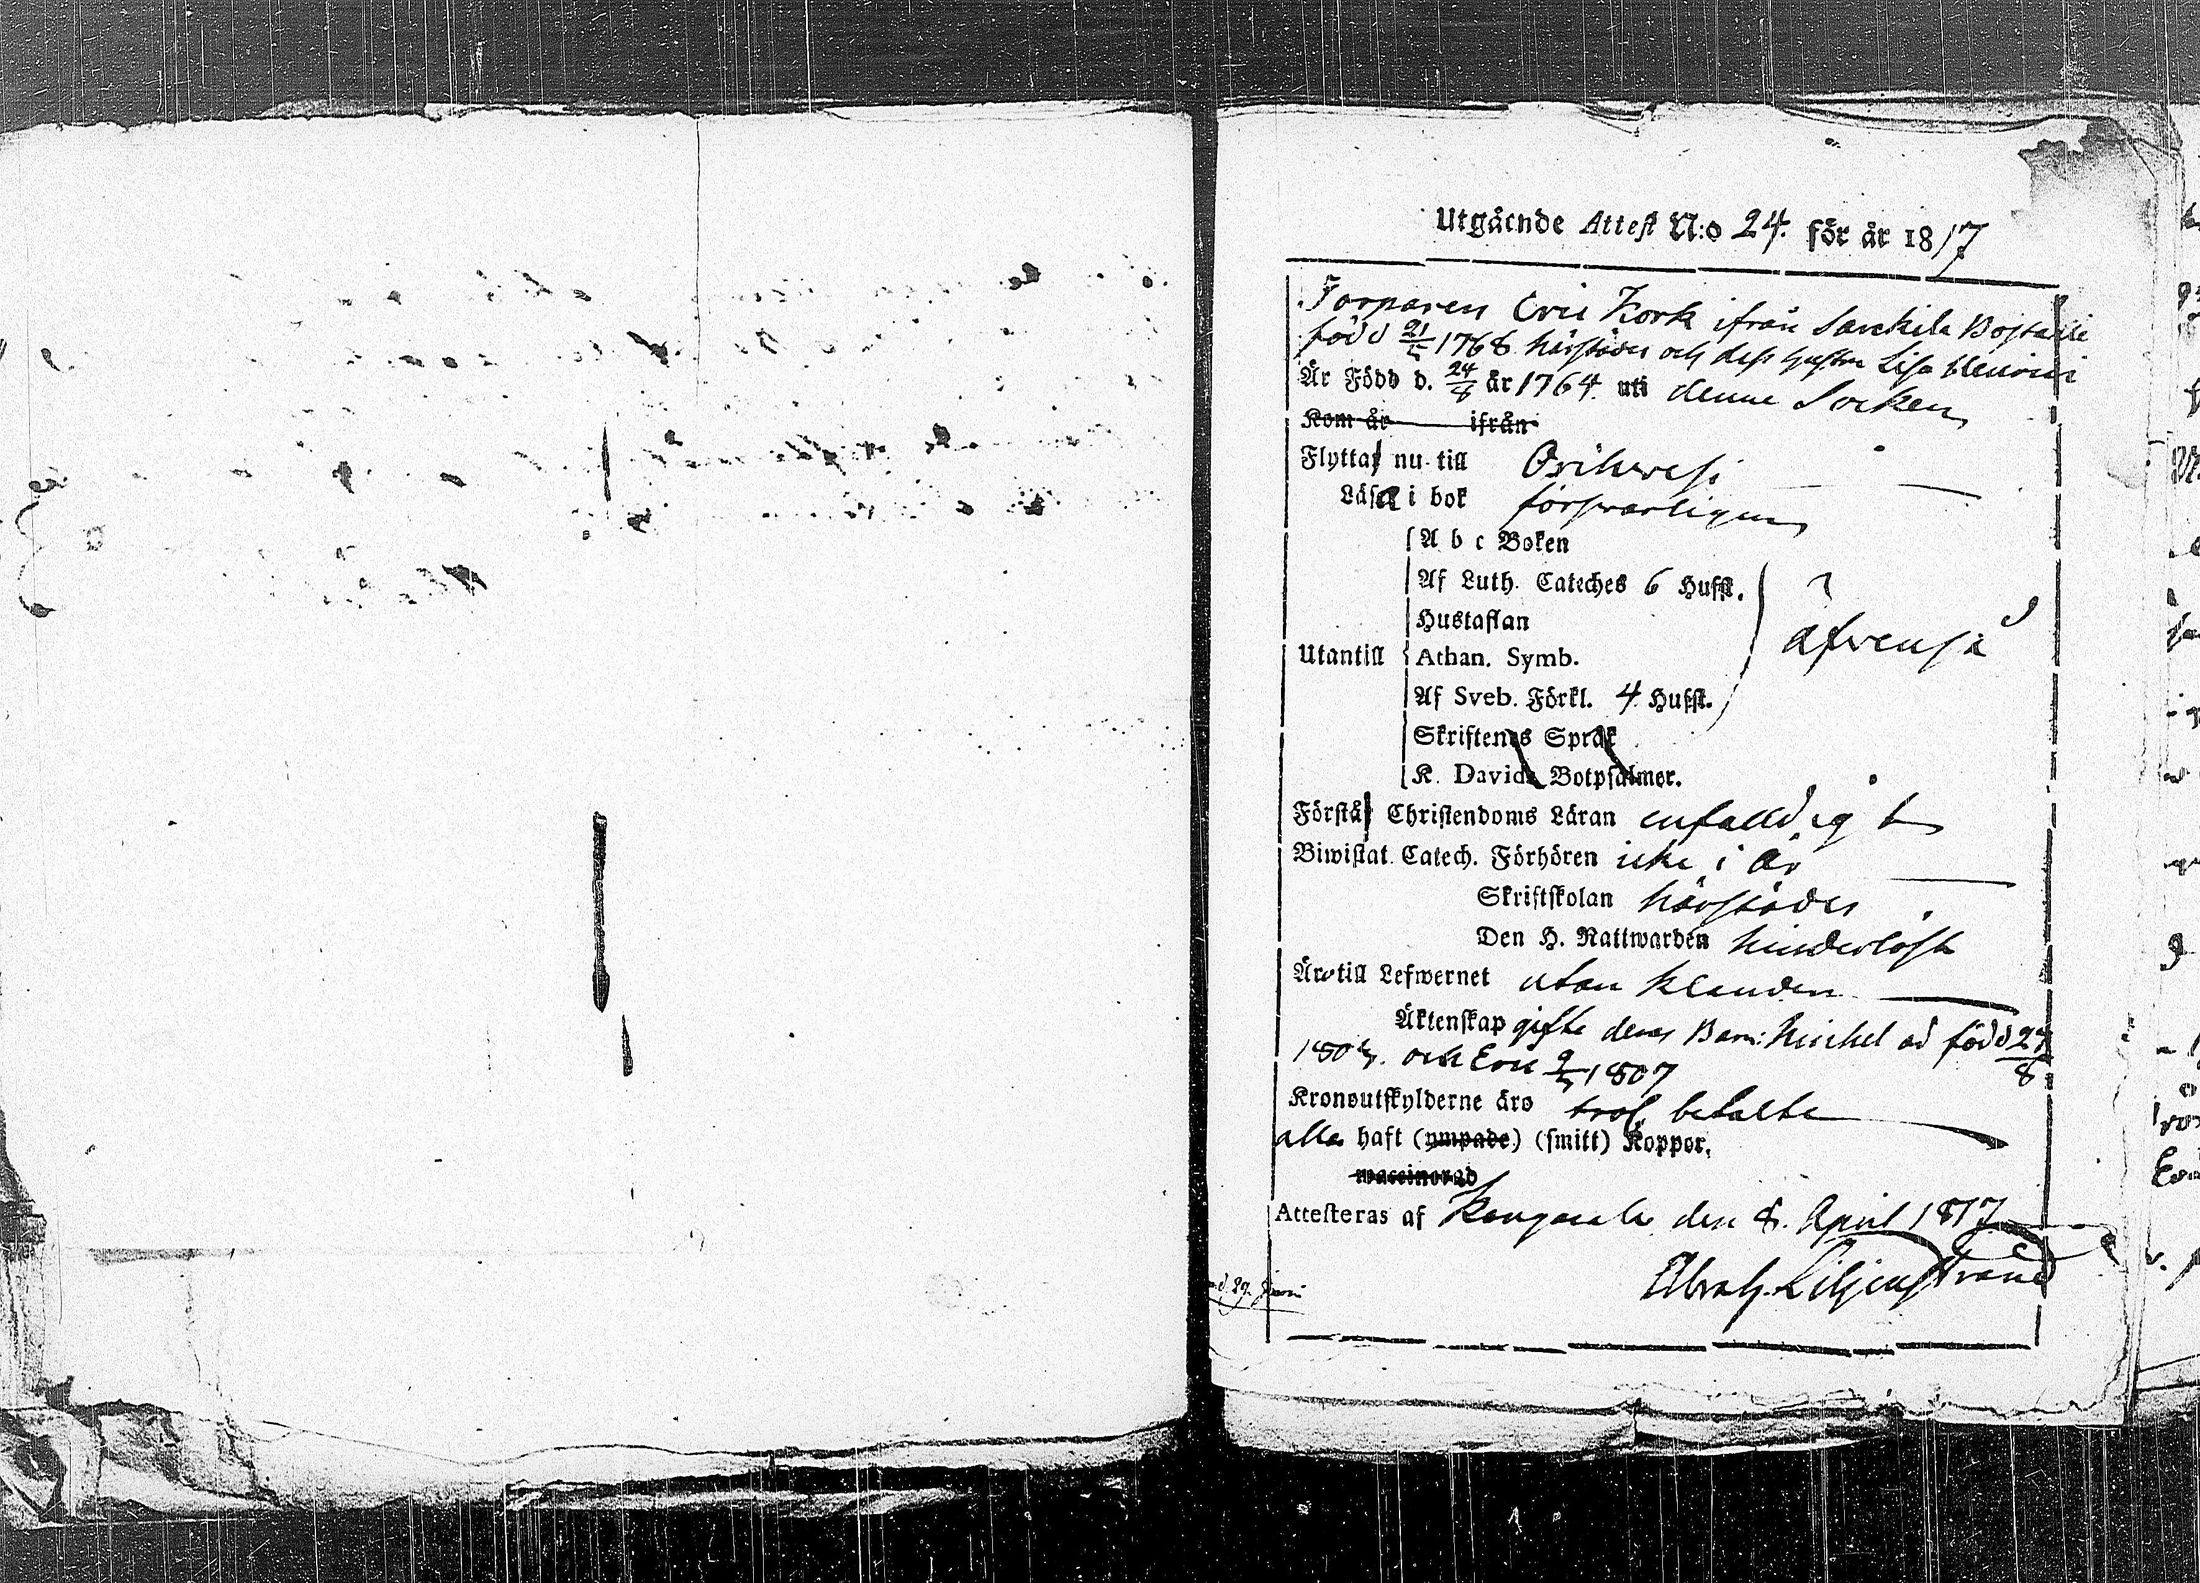 Utgående Attest N:o 24. för år 1817
Torparen Eric Kork ifrån Sarckila Boställe
född 21/5 1768 härstädes och dess hustru Lisa
Är Född d. 24/8 år 1764 uti denne Socken
Kom år ifrån
Flytta nu till Orihwesi
Läsa i bok förswarligen
A b c Boken
Af Luth. Cateches 6 Hufst.
Hustaflan
Utantill Athan. Symb. äfwenså
Af Sveb. Förkl. 4 Hufst.
Skriftenes Språk
K. Davids Botpsalmer.
Förstå Christendoms Läran enfalldigt
Biwistat Catech. Förhören icke i år
Skriftskolan härstädes
Den H. Nattwarden hinderlöst
Äro till Lefwernet utan klander
Äktenskap gifte deras Barn: Michel född 24/8
och Eric 1807
Kronoutskylderne äro betalte
alla haft (ympade) (smitt) Koppor.
waccinerad
Attesteras af Kangasala den 8. April 1817
Abrah. Liljenstrand
d. 29. Juni